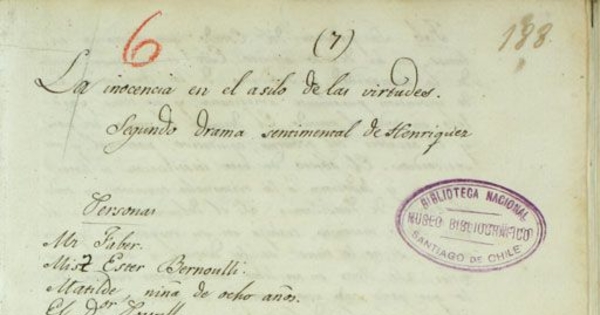 6
(7)
188
La inocencia en el asilo de las virtudes.
Segundo drama sentimental de Henriquez
BIBLIOTECA NACIONAL
MUSEO BIBLIOGRÁFICO
SANTIAGO DE CHILE
Personas
Mr Faber.
Miss Ester Bernoulli.
Matilde, niña de ocho años.
El Dor